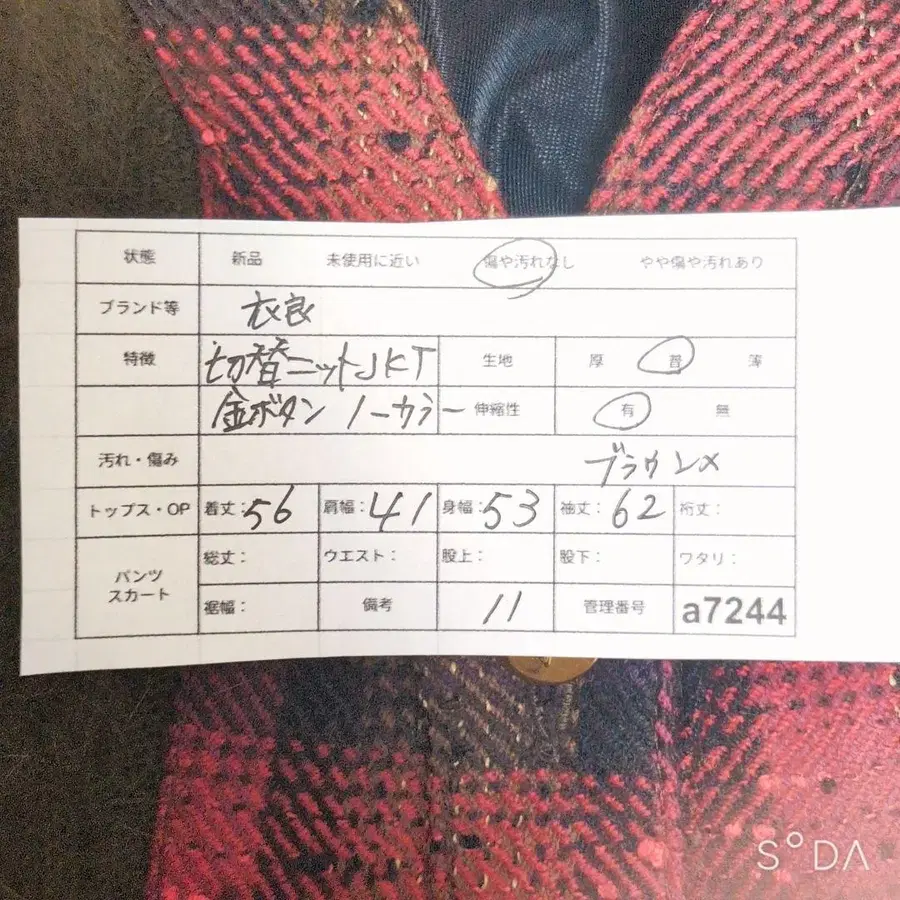 状態 新品 未使用に近い 傷や汚れなし やや傷や汚れあり
ブランド等 衣良
特徴 切替ニットJKT 生地 厚 普 薄
金ボタン ノーカラー 伸縮性 有 無
汚れ・傷み ブラウン×
トップス・OP 着丈:56 肩幅:41 身幅:53 袖丈:62 裄丈:
パンツ スカート 総丈: ウエスト: 股上: 股下: ワタリ:
裾幅: 備考 11 管理番号 a7244
SODA